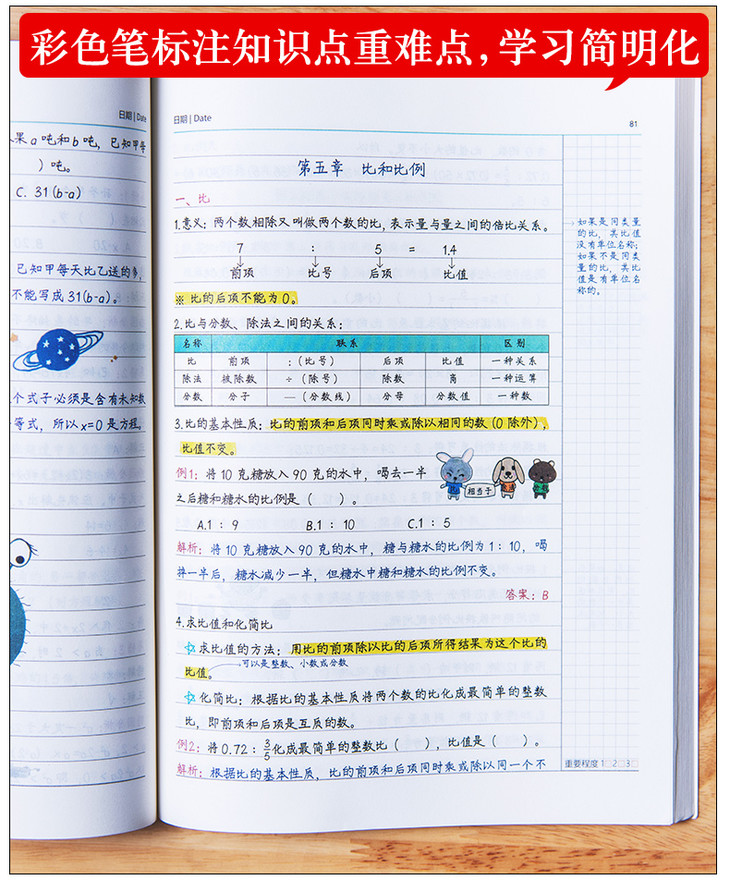 彩色笔标注知识点重难点，学习简明化
日期 | Date
果a吨和b吨，已知甲每
）吨。
C. 31(b-a)
已知甲每天比乙送的多，
不能写成31(b-a)。
个式子必须是含有未知数
等式，所以x=0是方程。
日期 | Date
81
第五章 比和比例
一、比
1.意义：两个数相除又叫做两个数的比，表示量与量之间的倍比关系。
7 : 5 = 1.4
前项 比号 后项 比值
※ 比的后项不能为0。
如果是同类量
的比，其比值
没有单位名称；
如果不是同类
量的比，其比
值是有单位名
称的。
2.比与分数、除法之间的关系：
名称 联系 区别
比 前项 ：（比号） 后项 比值 一种关系
除法 被除数 ÷（除号） 除数 商 一种运算
分数 分子 —（分数线） 分母 分数值 一种数
3.比的基本性质：比的前项和后项同时乘或除以相同的数（0除外），
比值不变。
例1：将10克糖放入90克的水中，喝去一半
之后糖和糖水的比例是（ ）。
相当于
A.1：9 B.1：10 C.1：5
解析：将10克糖放入90克的水中，糖与糖水的比例为1：10，喝
掉一半后，糖水减少一半，但糖水中糖和糖水的比例不变。
答案：B
4.求比值和化简比
求比值的方法：用比的前项除以比的后项所得结果为这个比的
比值。
可以是整数、小数或分数
化简比：根据比的基本性质将两个数的比化成最简单的整数
比，即前项和后项是互质的数。
例2：将0.72：3/5化成最简单的整数比（ ），比值是（ ）。
解析：根据比的基本性质，比的前项和后项同时乘或除以同一个不
重要程度 1□2□3□